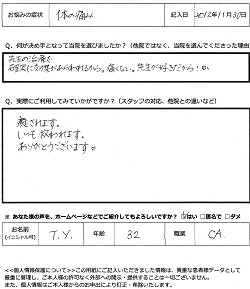 お悩みの症状 体の痛み 記入日 2012年11月3日
Q. 何が決め手となって当院を選びましたか?(他院ではなく、当院を選んでくださった理由
先生の治療で
確実に効果があらわれるから。痛くない。先生が好きだから!
Q. 実際にご利用してみていかがですか?(スタッフの対応、他院との違いなど)
癒されます。
いつも救われます。
ありがとうございます。
※ あなた様の声を、ホームページなどでご紹介してもよろしいですか? はい □匿名で □ダメ
お名前 (イニシャル可) T.Y. 年齢 32 職業 CA.
<<個人情報保護について>>この用紙にご記入いただきました情報は、貴重な患者様データとして
厳重に管理し、ご本人様の許可なく外部への開示・提供することは一切ございません。
また、個人情報はご本人様からのお申出により訂正・削除いたします。